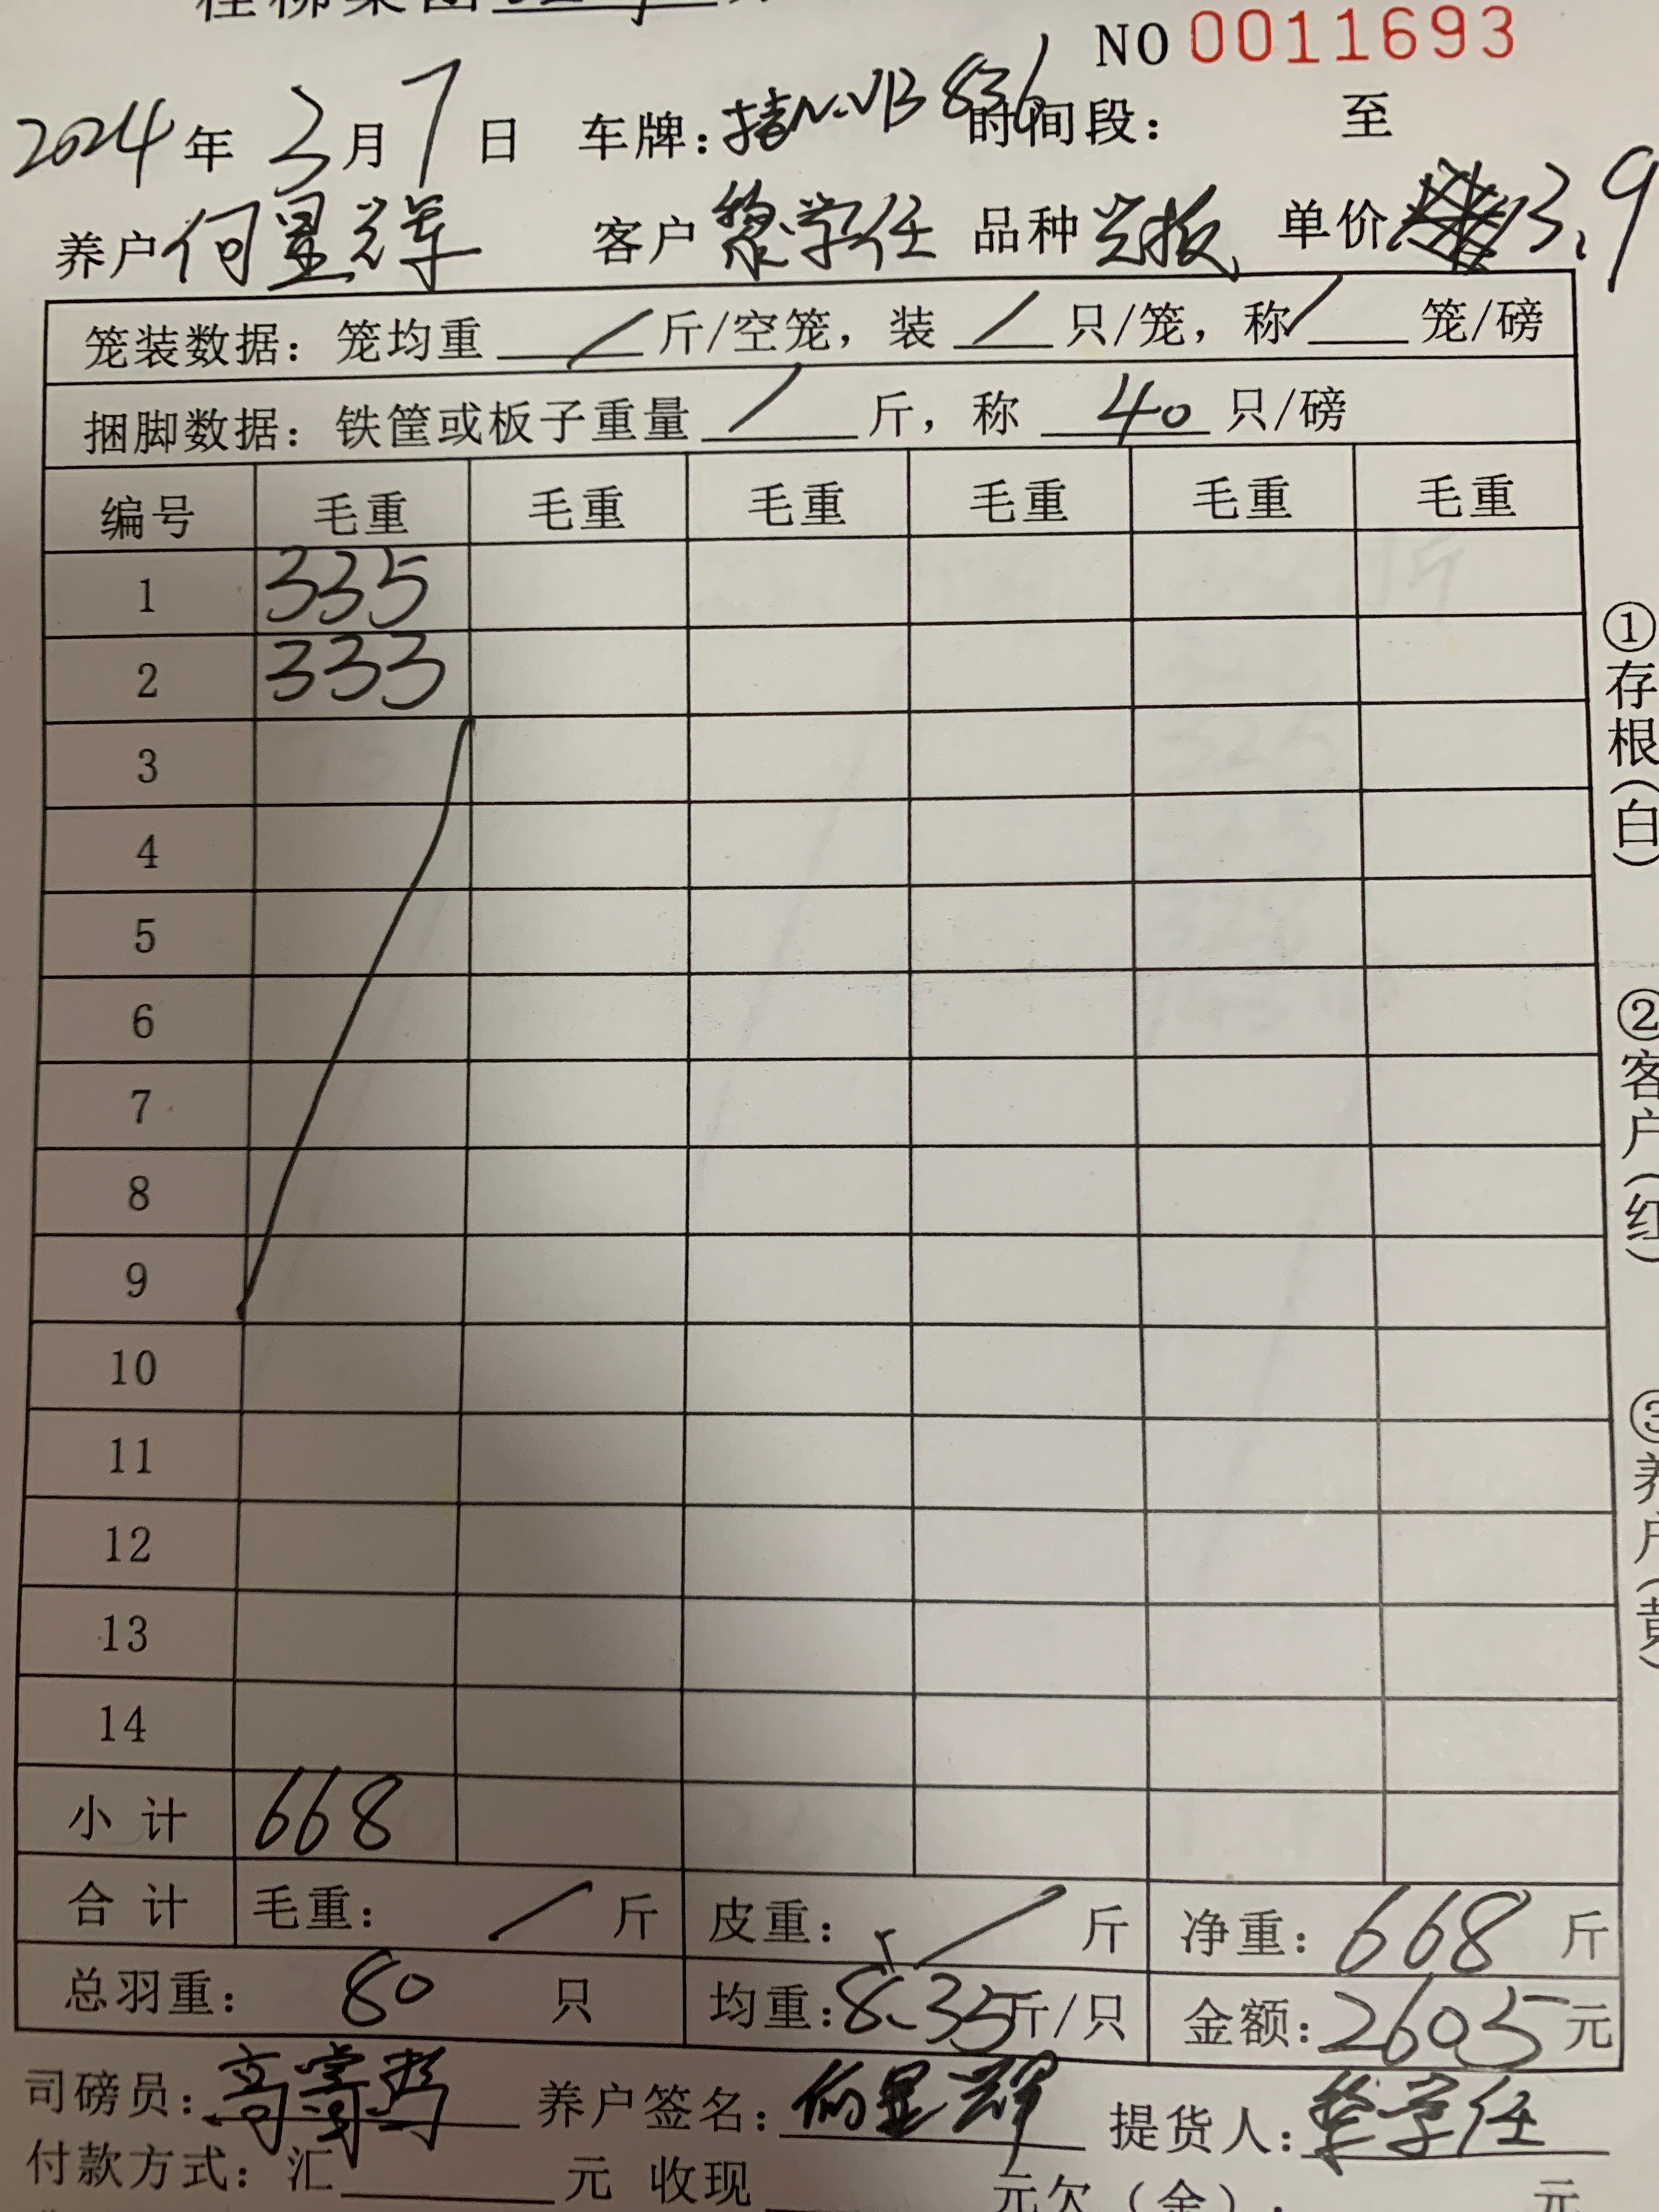 桂柳集团
NO 0011693
2024 年 3 月 7 日 车牌: VB836 时间段: 至
养户 何显辉 客户 黎学任 品种 单价 3.9
笼装数据: 笼均重 / 斤/空笼, 装 / 只/笼, 称 / 笼/磅
捆脚数据: 铁筐或板子重量 / 斤, 称 40 只/磅
编号 毛重 毛重 毛重 毛重 毛重 毛重
1 335
2 333
3
4
5
6
7
8
9
10
11
12
13
14
小计 668
合计 毛重: / 斤 皮重: / 斤 净重: 668 斤
总羽重: 80 只 均重: 8.35 斤/只 金额: 2605 元
司磅员: 高 养户签名: 何显辉 提货人: 黎学任
付款方式: 汇 元 收现 元欠(余): 元
①存根(白)
②客户(红)
③养户(黄)